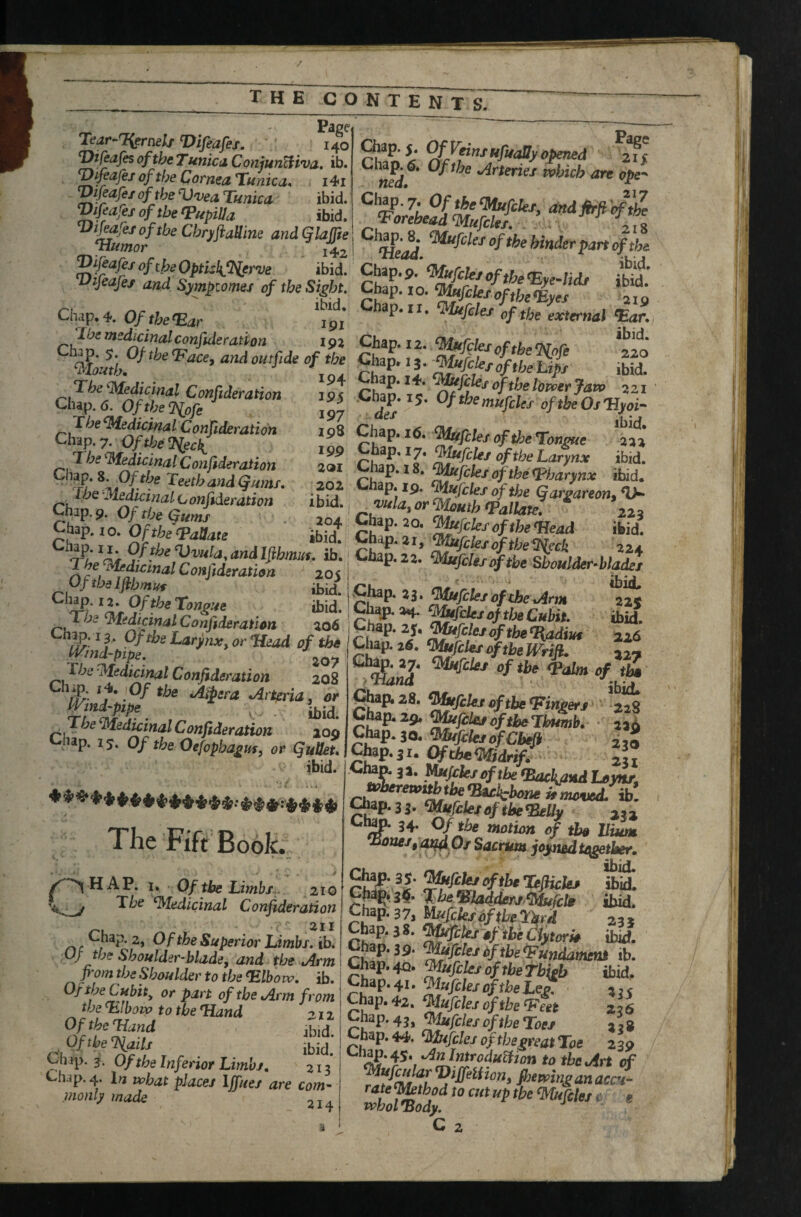 THE CONTENTS.
Page
Tear-Kernels Diseases. 140
Diseases of the Tunica Conjunctiva. ib.
Diseases of the Cornea Tunica. 141
Diseases of the Uvea Tunica ibid.
Diseases of the Pupilla ibid.
Diseases of the Chrystalline and Glassie
Humor 142
Diseases of the Optick Nerve ibid.
Diseases and Symptomes of the Sight.
ibid.
Chap. 4. Of the Ear 191
The medicinal consideration 192
Chap. 5. Of the Face, and outside of the
Mouth. 194
The Medicinal Consideration 195
Chap. 6. Of the Nose 197
The Medicinal Consideration 198
Chap. 7. Of the Neck 199
The Medicinal Consideration 201
Chap. 8. Of the Teeth and Gums. 202
The Medicinal Consideration ibid.
Chap. 9. Of the Gums 204
Chap. 10. Of the Pallate ibid.
Chap. 11. Of the Uvula, and Isthmus. ib.
The Medicinal Consideration 205
Of the Isthmus ibid.
Chap. 12. Of the Tongue ibid.
The Medicinal Consideration 206
Chap. 13. Of the Larynx, or Head of the
Wind-pipe. 207
The Medicinal Consideration 208
Chap. 14. Of the Aspera Arteria, or
Wind-pipe ibid.
The Medicinal Consideration 209
Chap. 15. Of the Oesophagus, or Gullet.
ibid.
The Fift Book.
CHAP. 1. Of the Limbs 210
The Medicinal Consideration
211
Chap. 2, Of the Superior Limbs. ib.
Of the Shoulder-blade, and the Arm
from the Shoulder to the Elbow. ib.
Of the Cubit, or part of the Arm from
the Elbow to the Hand 212
Of the Hand ibid.
Of the Nails ibid.
Chap. 3. Of the Inferior Limbs. 213
Chap. 4. In what places Issues are com-
monly made 214
a
Page
Chap. 5. Of Veins usually opened 215
Chap. 6. Of the Arteries which are ope-
ned. 217
Chap. 7. Of the Muscles, and first of the
Forehead Muscles. 218
Chap. 8. Muscles of the hinder part of the
Head. ibid.
Chap. 9. Muscles of the Eye-lids ibid.
Chap. 10. Muscles of the Eyes 219
Chap. 11. Muscles of the external Ear.
ibid.
Chap. 12. Muscles of the Nose 220
Chap. 13. Muscles of the Lips ibid.
Chap. 14. Muscles of the lower Jaw 221
Chap. 15. Of the muscles of the Os Hyoi-
des ibid.
Chap. 16. Muscles of the Tongue 222
Chap. 17. Muscles of the Larynx ibid.
Chap. 18. Muscles of the Pharynx ibid.
Chap. 19. Muscles of the Gargareon, U-
vula, or Mouth Pallate. 223
Chap. 20. Muscles of the Head ibid.
Chap. 21, Muscles of the Neck 224
Chap. 22. Muscles of the Shoulder-blades
ibid.
Chap. 23. Muscles of the Arm 225
Chap. 24. Muscles of the Cubit. ibid.
Chap. 25. Muscles of the Radius 226
Chap. 26. Muscles of the Wrist. 227
Chap. 27. Muscles of the Palm of the
Hand ibid.
Chap. 28. Muscles of the Fingers 228
Chap. 29. Muscles of the Thumb. 229
Chap. 30. Muscles of Chest 230
Chap. 31. Of the Midrif. 231
Chap. 32. Muscles of the Back, and Loyns,
wherewith the Back-bone is moved. ib.
Chap. 33. Muscles of the Belly 232
Chap. 34. Of the motion of the Ilium
Bones, and Os Sacrum joyned together.
ibid.
Chap. 35. Muscles of the Testicles ibid.
Chap. 36. The Bladders Muscle ibid.
Chap. 37, Muscles of the Yard 233
Chap. 38. Muscles of the Clytoris ibid.
Chap. 39. Muscles of the Fundament ib.
Chap. 40. Muscles of the Thigh ibid.
Chap. 41. Muscles of the Leg. 235
Chap. 42. Muscles of the Feet 236
Chap. 43, Muscles of the Toes 238
Chap. 44. Muscles of the great Toe 239
Chap. 45. An Introduction to the Art of
Muscular Dissection, shewing an accu-
rate Method to cut up the Muscles
whol Body.
C 2